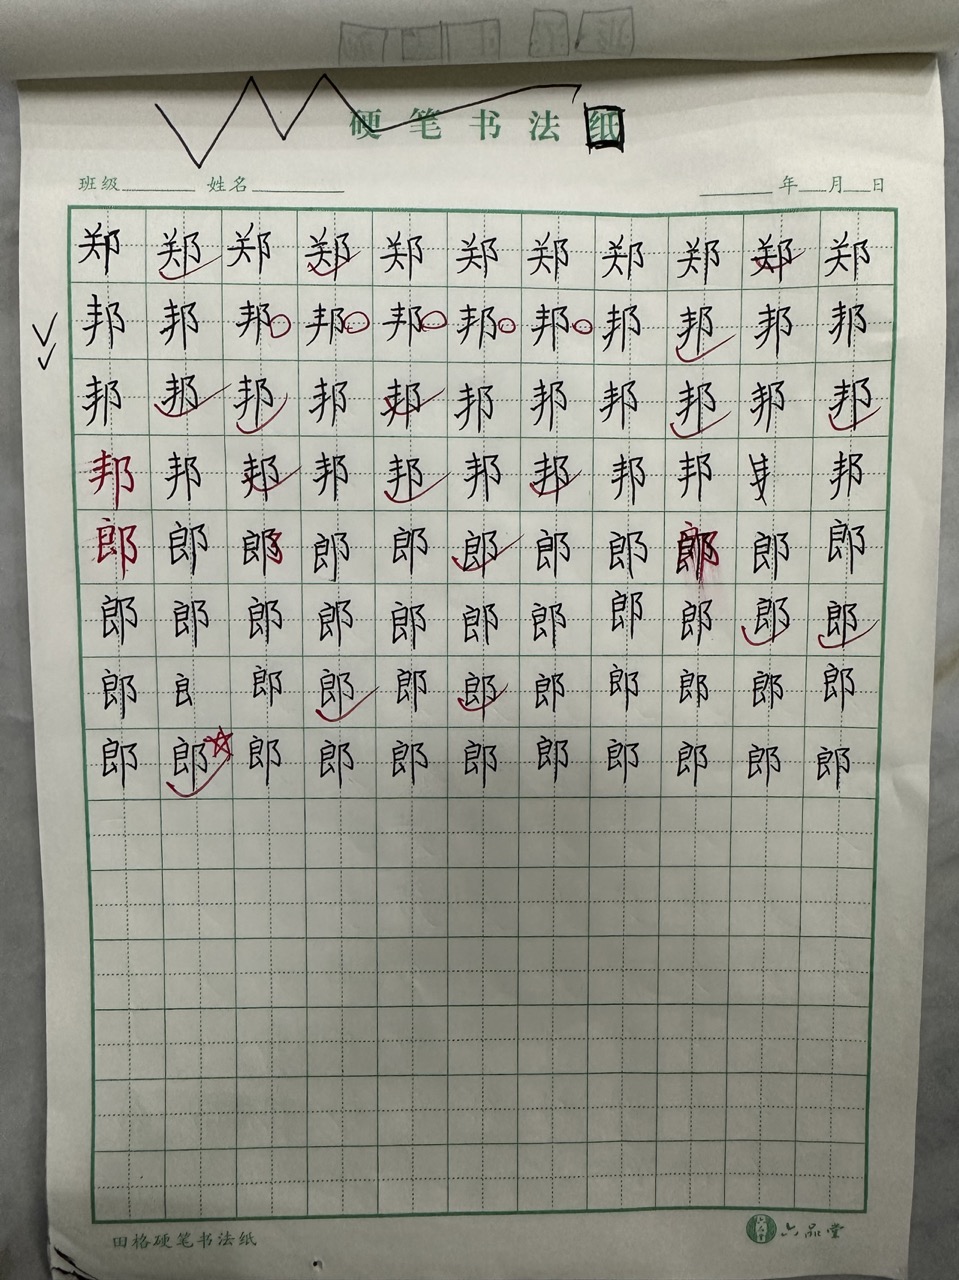 硬笔书法纸
班级 姓名 年 月 日
郑 郑 郑 郑 郑 郑 郑 郑 郑 郑 郑
邦 邦 邦 邦 邦 邦 邦 邦 邦 邦 邦
邦 邦 邦 邦 邦 邦 邦 邦 邦 邦 邦
邦 邦 邦 邦 邦 邦 邦 邦 邦 邦
郎 郎 郎 郎 郎 郎 郎 郎 郎 郎 郎
郎 郎 郎 郎 郎 郎 郎 郎 郎 郎 郎
郎 郎 郎 郎 郎 郎 郎 郎 郎 郎
郎 郎 郎 郎 郎 郎 郎 郎 郎 郎 郎
田格硬笔书法纸 六品堂